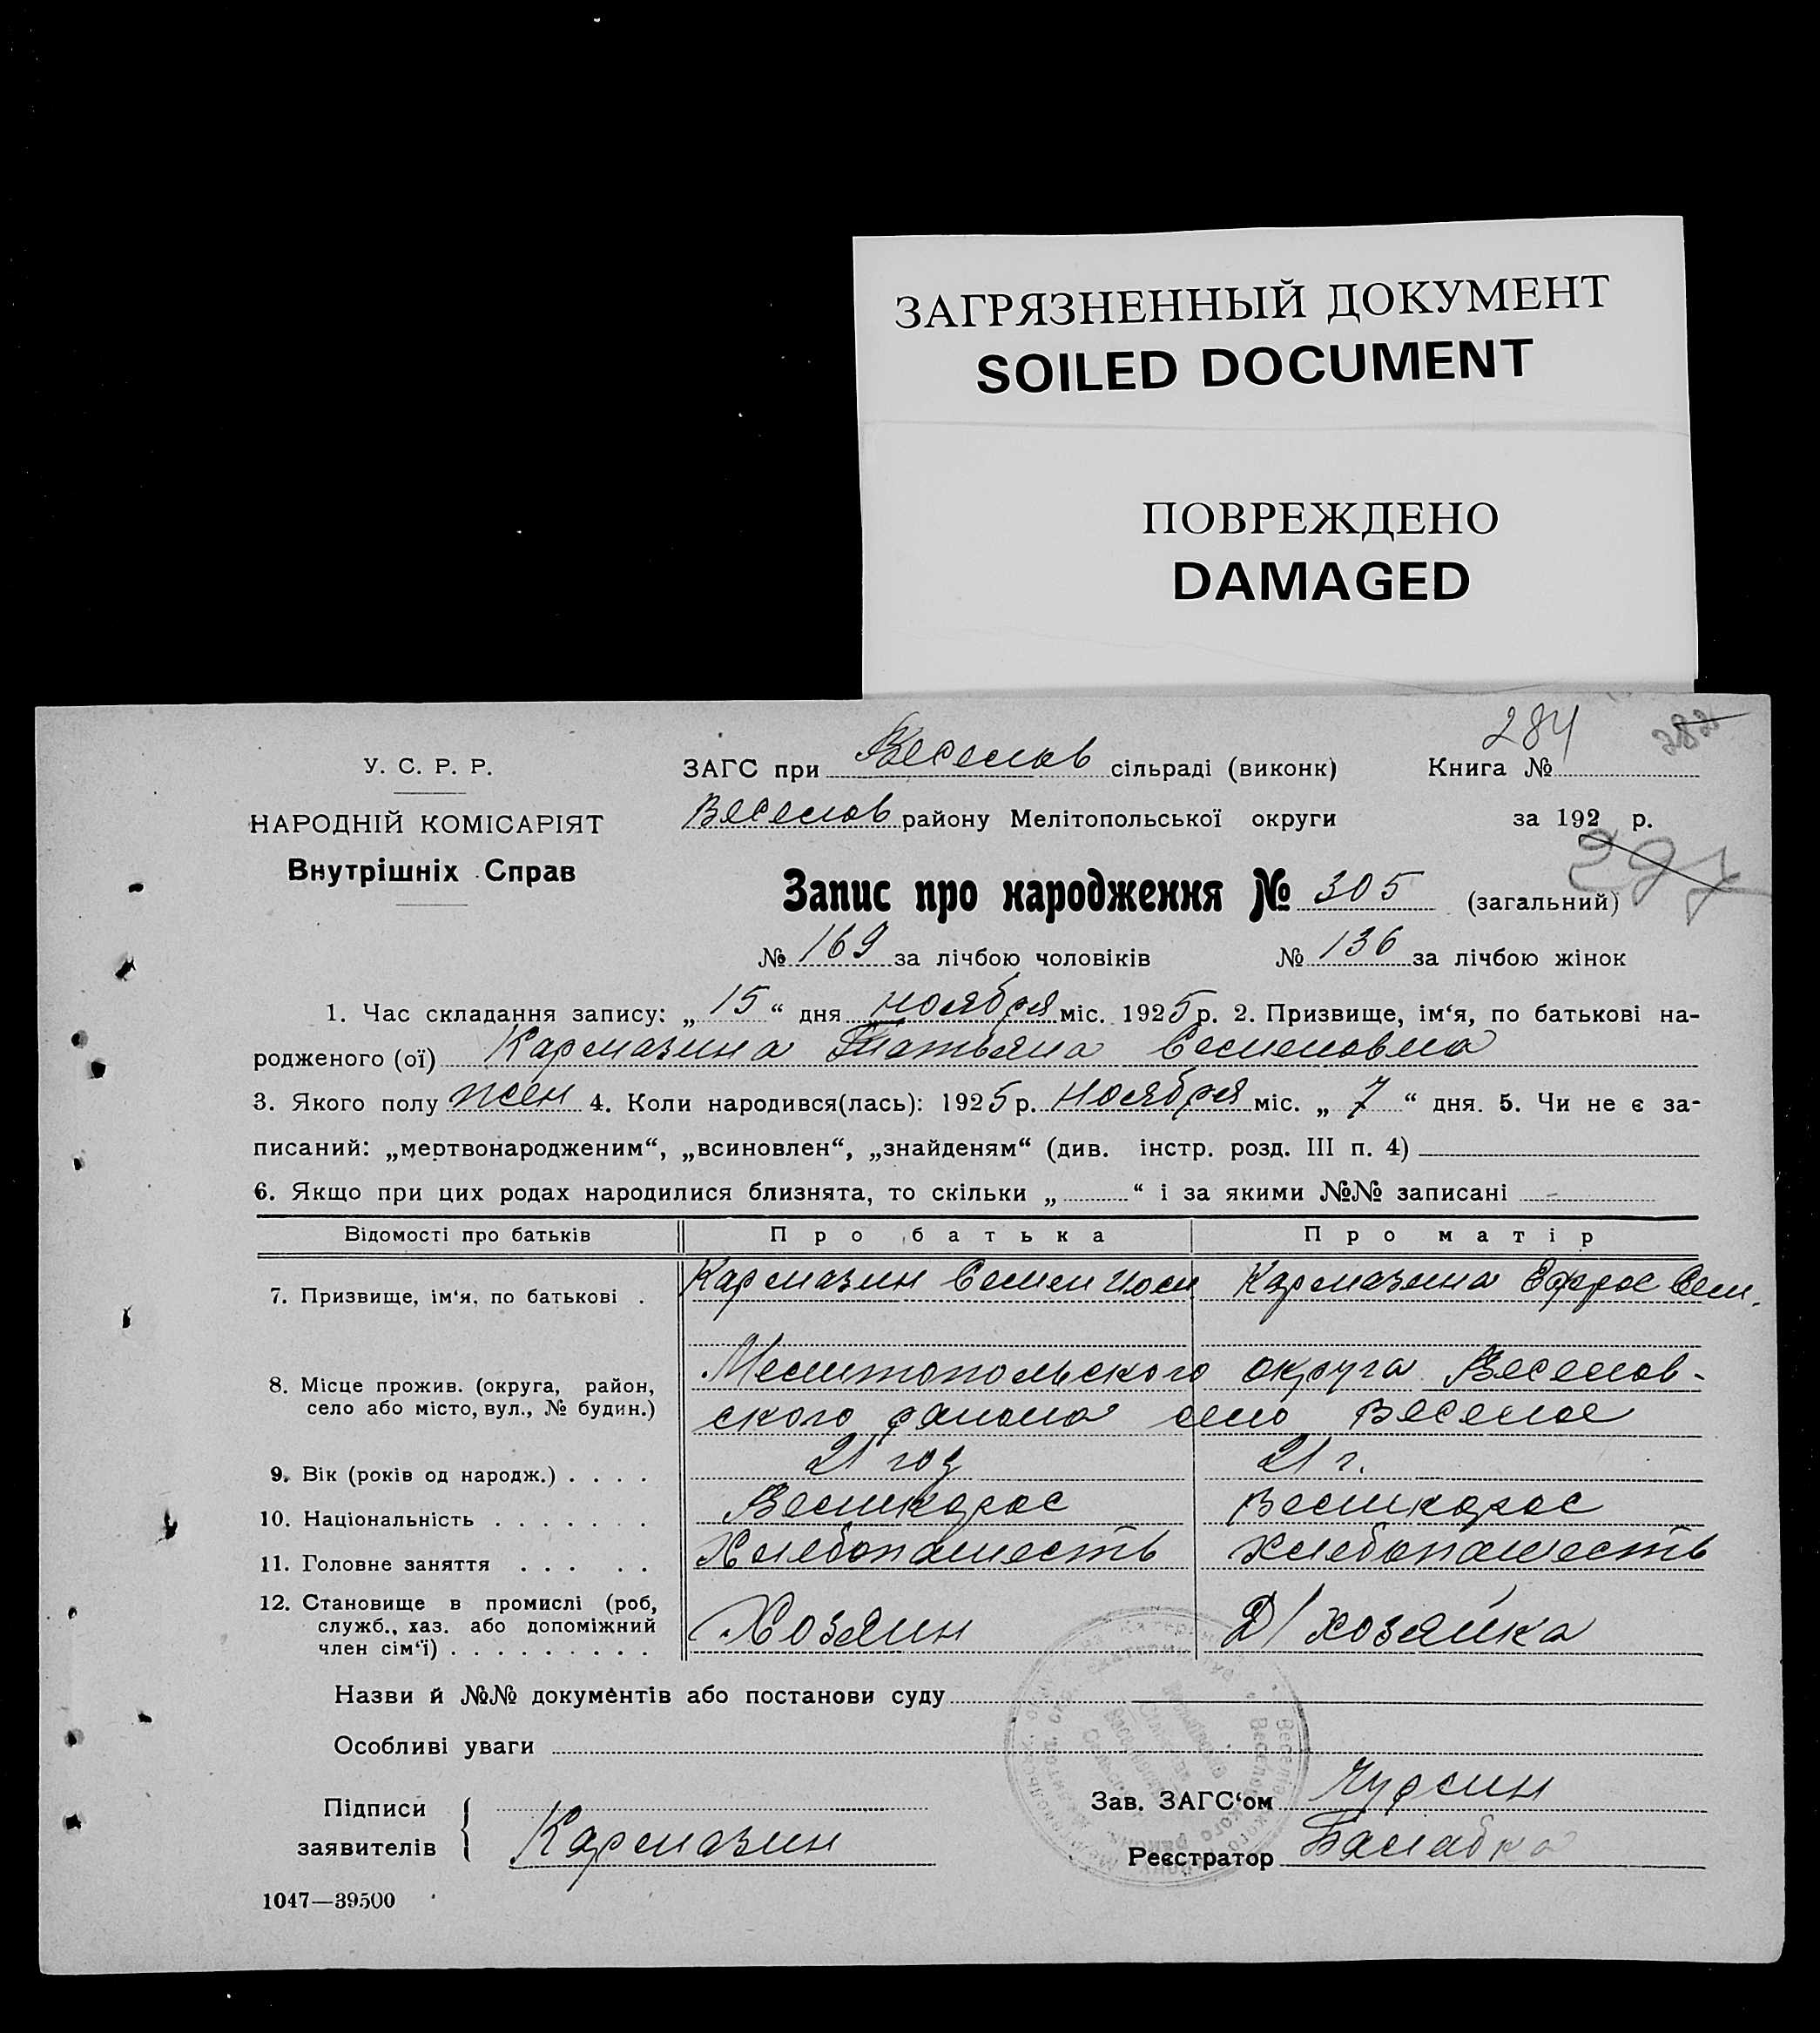 ЗАГРЯЗНЕННЫЙ ДОКУМЕНТ
SOILED DOCUMENT
ПОВРЕЖДЕНО
DAMAGED
284 282
У. С. Р. Р.
НАРОДНІЙ КОМІСАРІЯТ
Внутрішніх Справ
ЗАГС при Веселов сільраді (виконк) Книга №
Веселов району Мелітопольської округи за 192 р.
297
Запис про народження № 305 (загальний)
№ 169 за лічбою чоловіків № 136 за лічбою жінок
1. Час складання запису: „ 15 “ дня ноября міс. 1925 р. 2. Призвище, ім‘я, по батькові на-
родженого (ої) Кармазина Татьяна Семеновна
3. Якого полу жен 4. Коли народився(лась): 1925 р. Ноября міс. „ 7 “ дня. 5. Чи не є за-
писаний: „мертвонародженим“, „всиновлен“, „знайденям“ (див. інстр. розд. III п. 4)
6. Якщо при цих родах народилися близнята, то скільки „ “ і за якими №№ записані -
Відомості про батьків Про батька Про матір
7. Призвище, ім‘я, по батькові . Кармазин Семен Кармазина Ефрос Сем.
8. Місце прожив. (округа, район, село або місто, вул., № будин.) Мелитопольского округа Веселов-
ского района село Веселое
9. Вік (років од народж.) . . . . 21 год 21 г.
10. Національність . . . . . . . Великорос Великорос
11. Головне заняття . . . . . Хлебопашесть Хлебопашесть
12. Становище в промислі (роб,
служб., хаз. або допоміжний
член сім‘ї) . . . . . . . . . Хозяин Д/хозяйка
Назви й №№ документів або постанови суду
Особливі уваги
Підписи
заявителів Кармазин
Зав. ЗАГС‘ом Чурсин
Реєстратор Балабка
1047—39500